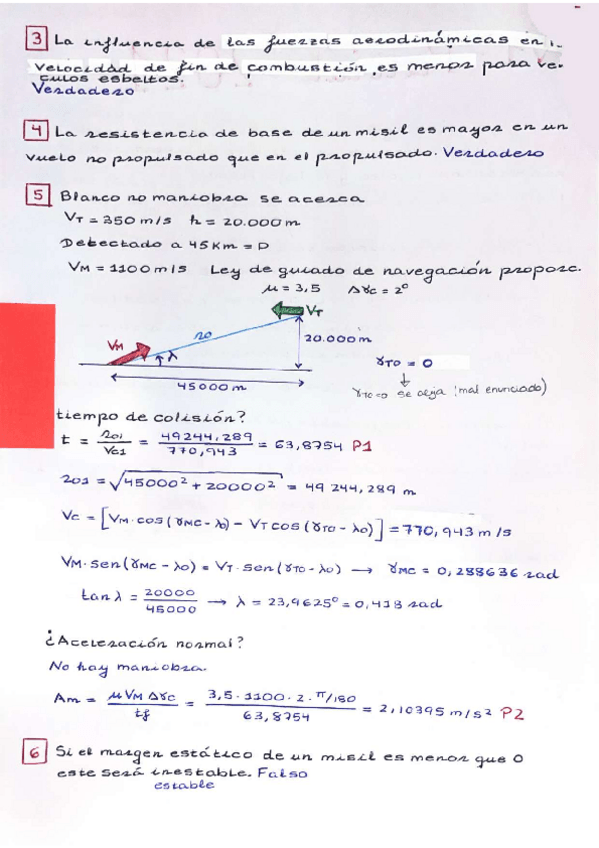 3 La influencia de las fuerzas aerodinámicas en
velocidad de fin de combustión es menor para ve-
ículos esbeltos.
Verdadero
4 La resistencia de base de un misil es mayor en un
vuelo no propulsado que en el propulsado. Verdadero
5 Blanco no maniobra se acerca
VT = 350 m/s h = 20.000 m
Detectado a 45 Km = D
VM = 1100 m/s Ley de guiado de navegación proporc.
μ = 3,5 Δγc = 2º
VT
VM
r0
λ
20.000 m
γT0 = 0
45000 m
γT0=0 se aleja (mal enunciado)
tiempo de colisión?
t = r01 / Vc1 = 49244,289 / 770,943 = 63,8754 P1
r01 = √(45000² + 20000²) = 49 244,289 m
Vc = [VM·cos(γMC - λ0) - VT cos(γT0 - λ0)] = 770,943 m/s
VM·sen(γMC - λ0) = VT·sen(γT0 - λ0) → γMC = 0,288636 rad
tan λ = 20000 / 45000 → λ = 23,9625º = 0,418 rad
¿Aceleración normal?
No hay maniobra.
Am = μ VM Δγc / tf = 3,5 · 1100 · 2 · π/180 / 63,8754 = 2,10395 m/s² P2
6 Si el margen estático de un misil es menor que 0
este será inestable. Falso
estable